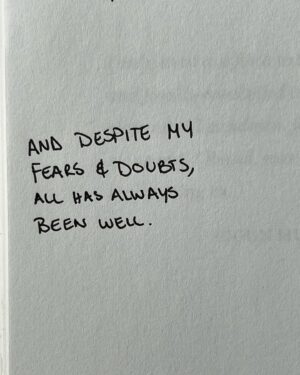 AND DESPITE MY
FEARS & DOUBTS,
ALL HAS ALWAYS
BEEN WELL.